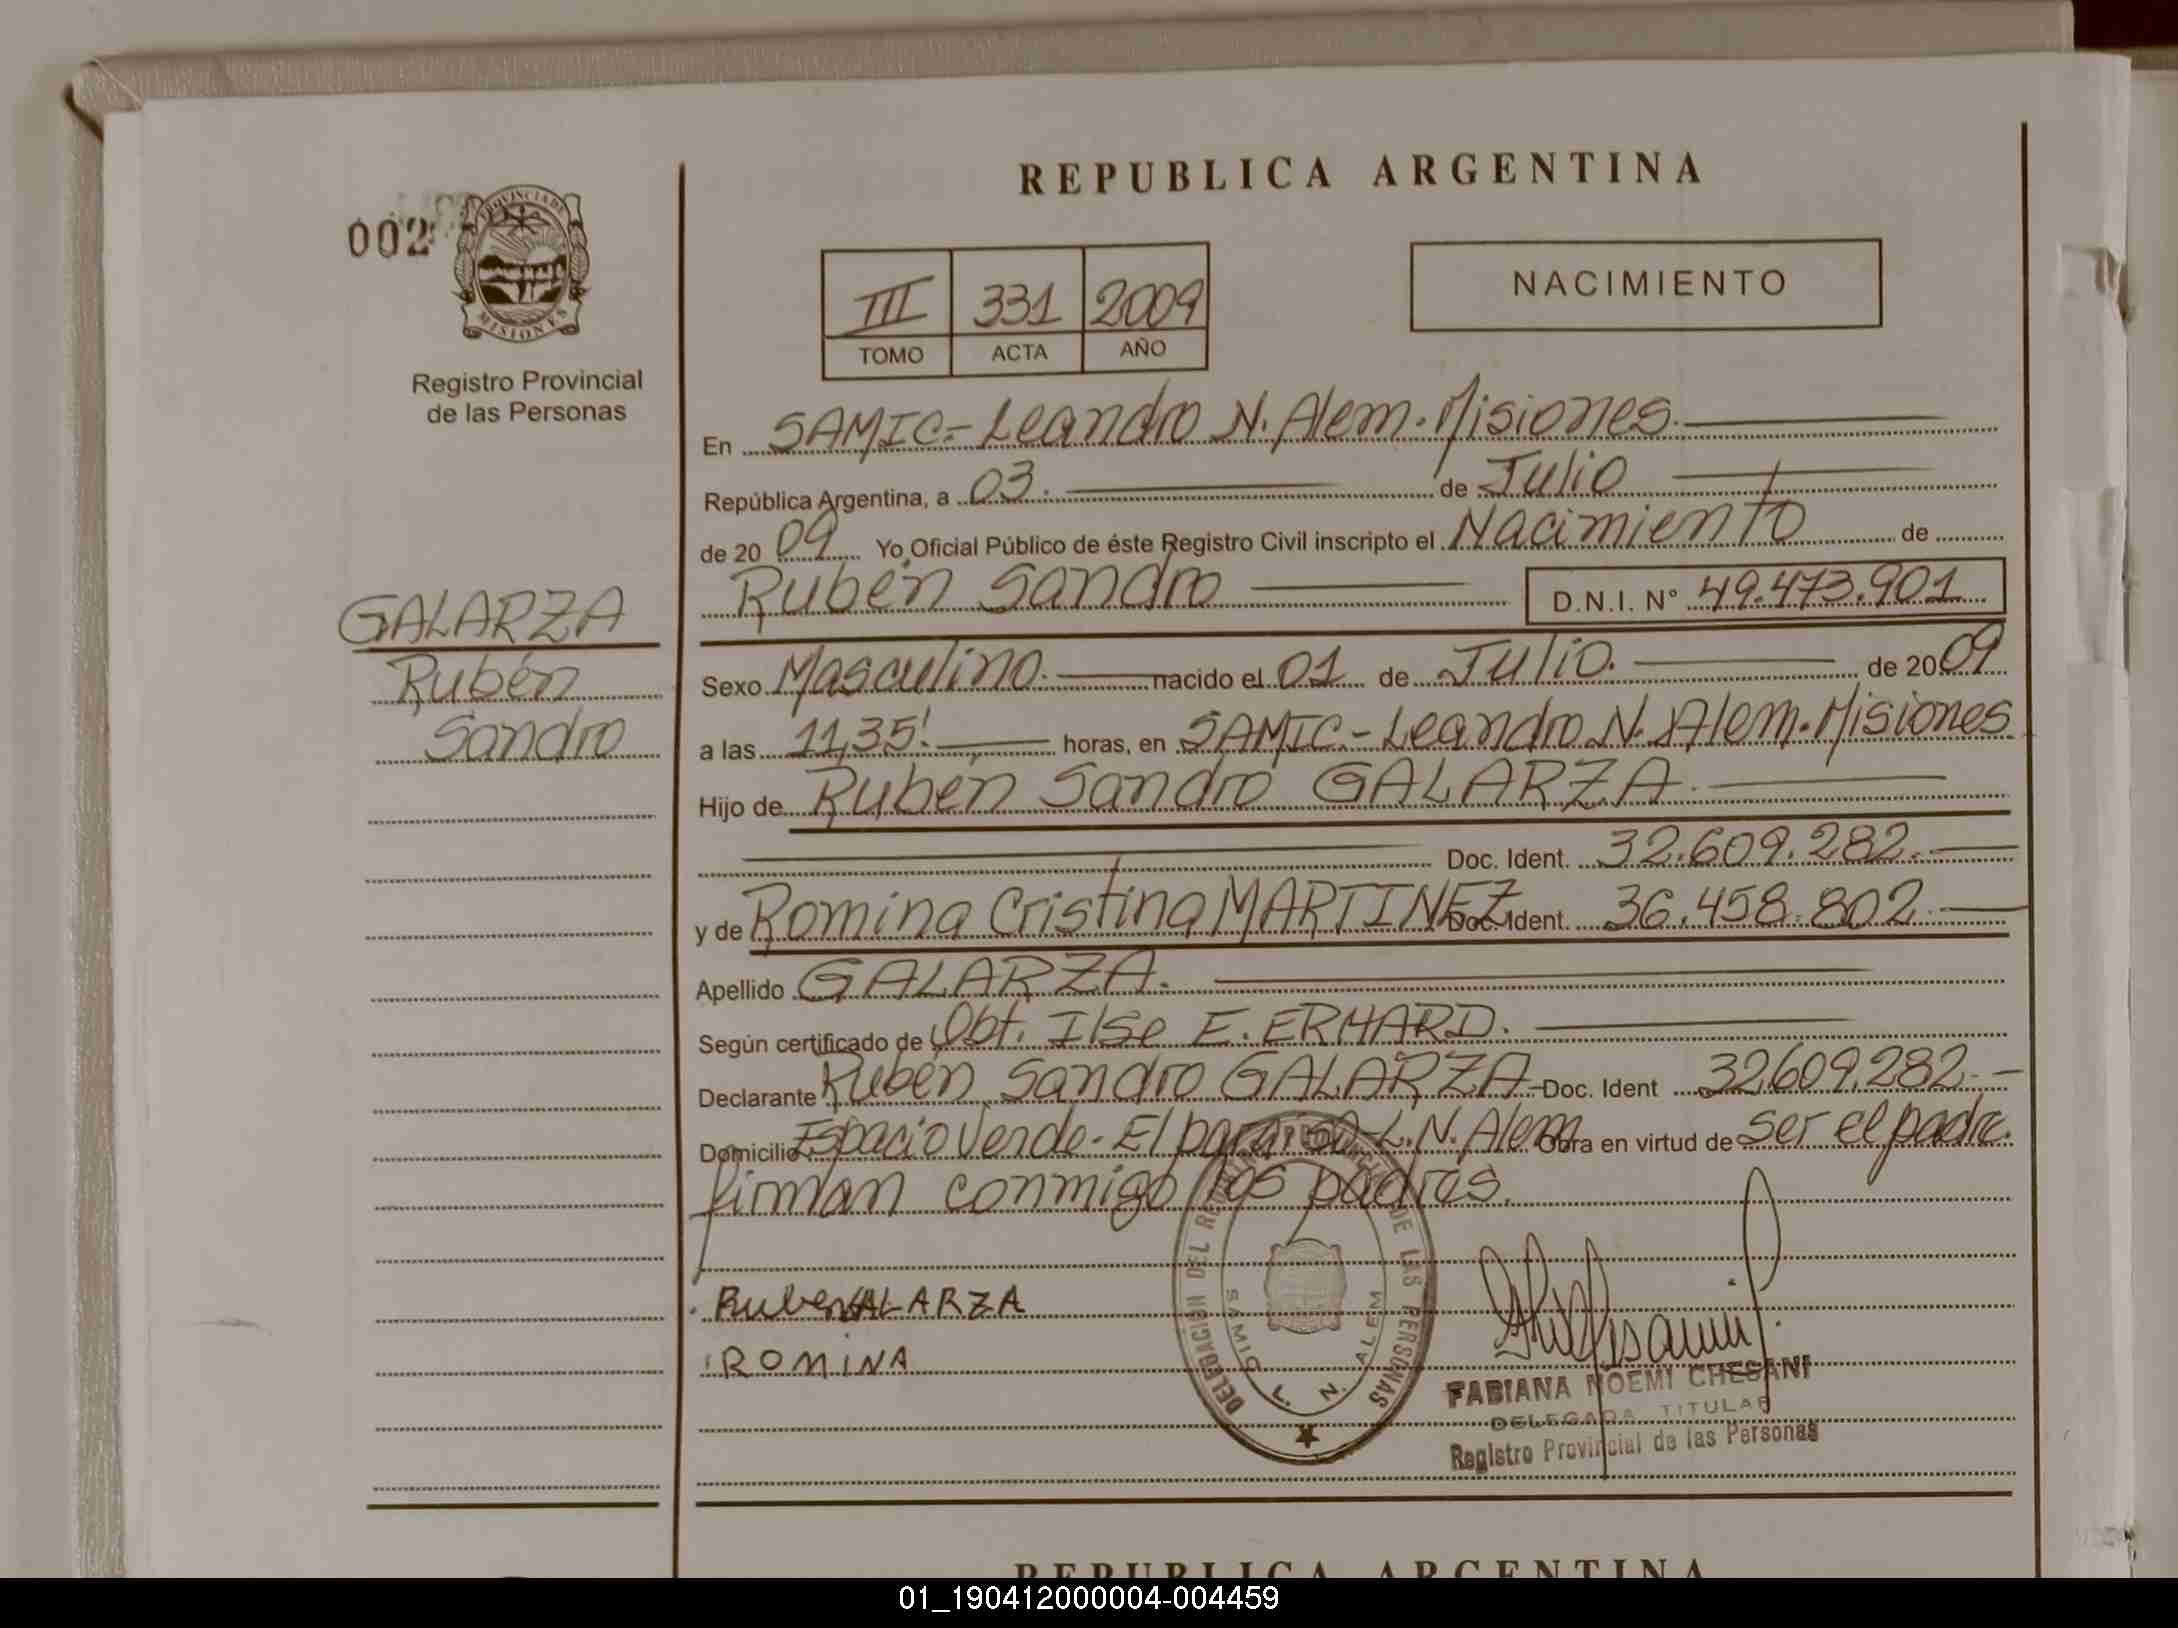 REPUBLICA ARGENTINA
002
PROVINCIA DE
MISIONES
Registro Provincial
de las Personas
III 331 2009
TOMO ACTA AÑO
NACIMIENTO
En SAMIC.- Leandro N. Alem. Misiones.
República Argentina, a 03. de Julio
de 20 09 Yo Oficial Público de éste Registro Civil inscripto el Nacimiento de
Rubén Sandro D.N.I. N° 49.473.901
GALARZA
Rubén
Sandro
Sexo Masculino. nacido el 01 de Julio. de 20 09
a las 11,35' horas, en SAMIC.- Leandro N. Alem. Misiones
Hijo de Rubén Sandro GALARZA.
Doc. Ident. 32.609.282.
y de Romina Cristina MARTINEZ Doc. Ident. 36.458.802.
Apellido GALARZA.
Según certificado de Obt. Ilse E. ERHARD.
Declarante Rubén Sandro GALARZA- Doc. Ident 32609.282.-
Domicilio Espacio Verde- El paraiso- L.N. Alem Obra en virtud de ser el padre.
firman conmigo los padres.
Ruben GALARZA
ROMINA
DELEGACIÓN DEL REGISTRO PROVINCIAL DE LAS PERSONAS
SAMIC L. N. ALEM
FABIANA NOEMI CHESANI
DELEGADA TITULAR
Registro Provincial de las Personas
REPUBLICA ARGENTINA
01_190412000004-004459